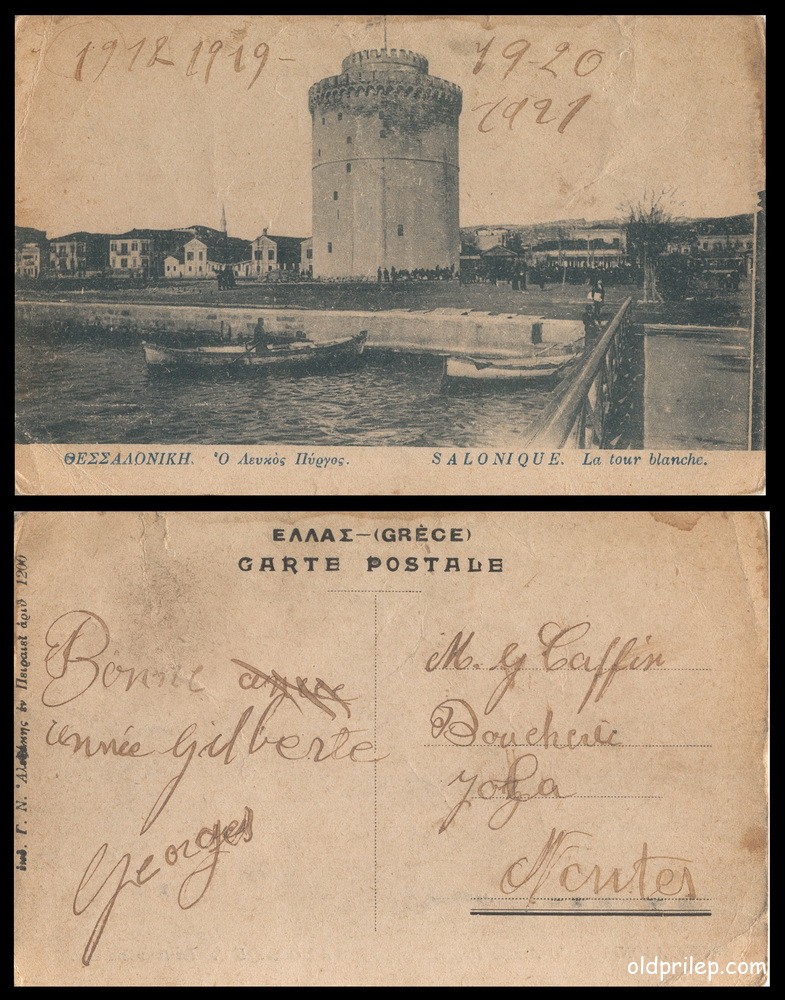 1912 1919 - 1920
1921
ΘΕΣΣΑΛΟΝΙΚΗ. Ὁ Λευκὸς Πύργος. SALONIQUE. La tour blanche.
ΕΛΛΑΣ—(GRÈCE)
CARTE POSTALE
Γ. Ν. Ἀλεξάκης ἐν Πειραιεῖ ἀριθ 1200
Bonne année
année Gilberte
Georges
M. G Caffin
Boucherie
Nantes
oldprilep.com